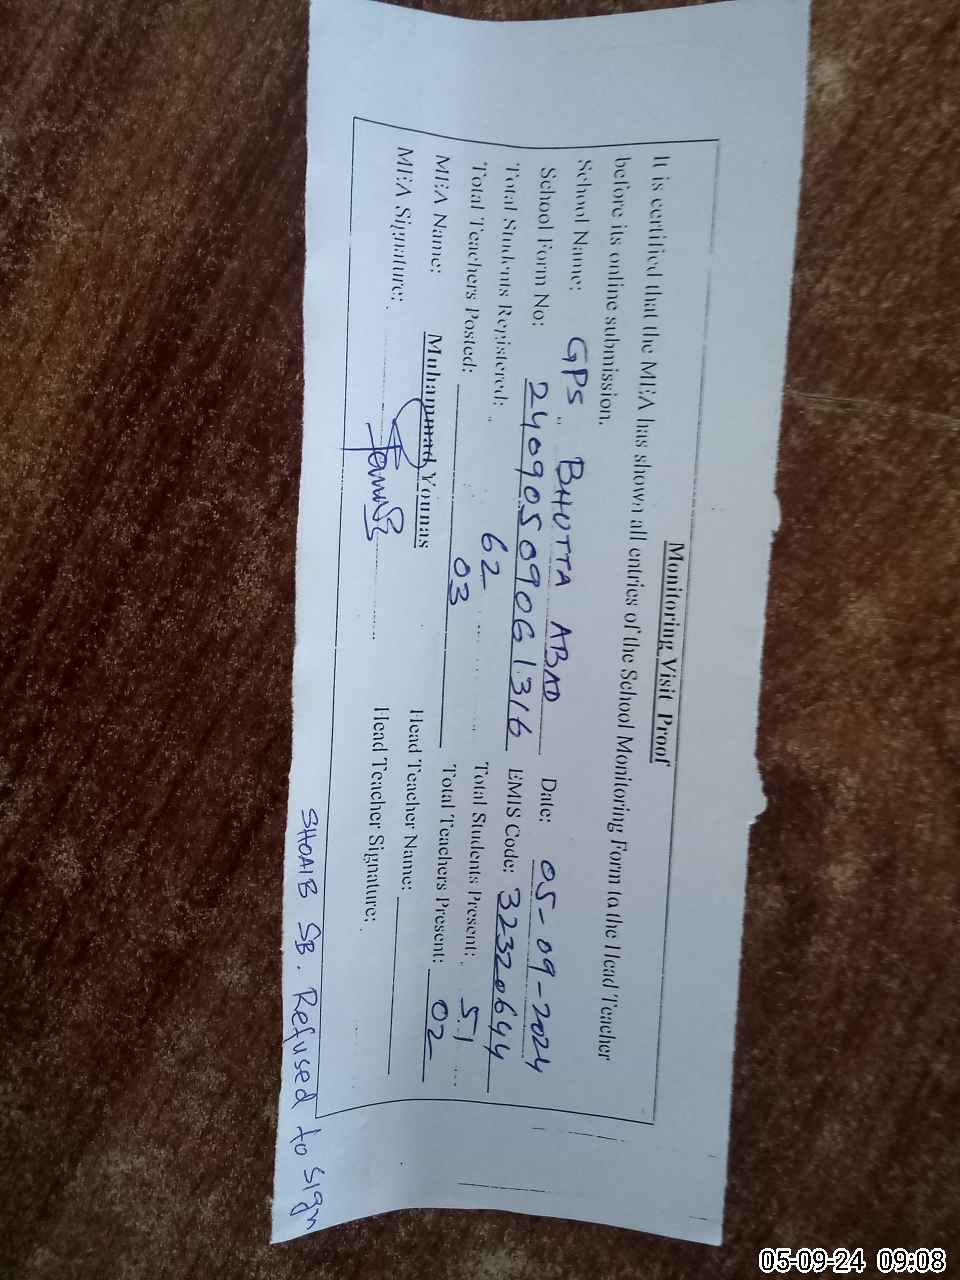 Monitoring Visit Proof
It is certified that the MEA has shown all entries of the School Monitoring Form to the Head Teacher
before its online submission.
School Name: GPS BHUTTA ABAD Date: 05-09-2024
School Form No: 24090509061316 EMIS Code: 32320644
Total Students Registered: 62 Total Students Present: 51
Total Teachers Posted: 03 Total Teachers Present: 02
MEA Name: Muhammad Younas Head Teacher Name:
MEA Signature: Head Teacher Signature:
SHOAIB SB. Refused to sign
05-09-24 09:08